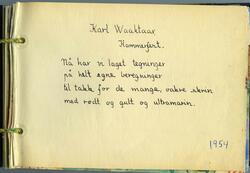 Karl Waaktaar
Hammerfest.
Nå har vi laget tegninger
på helt egne beregninger
til takk for de mange, vakre skrin
med rødt og gult og ultramarin.
1954